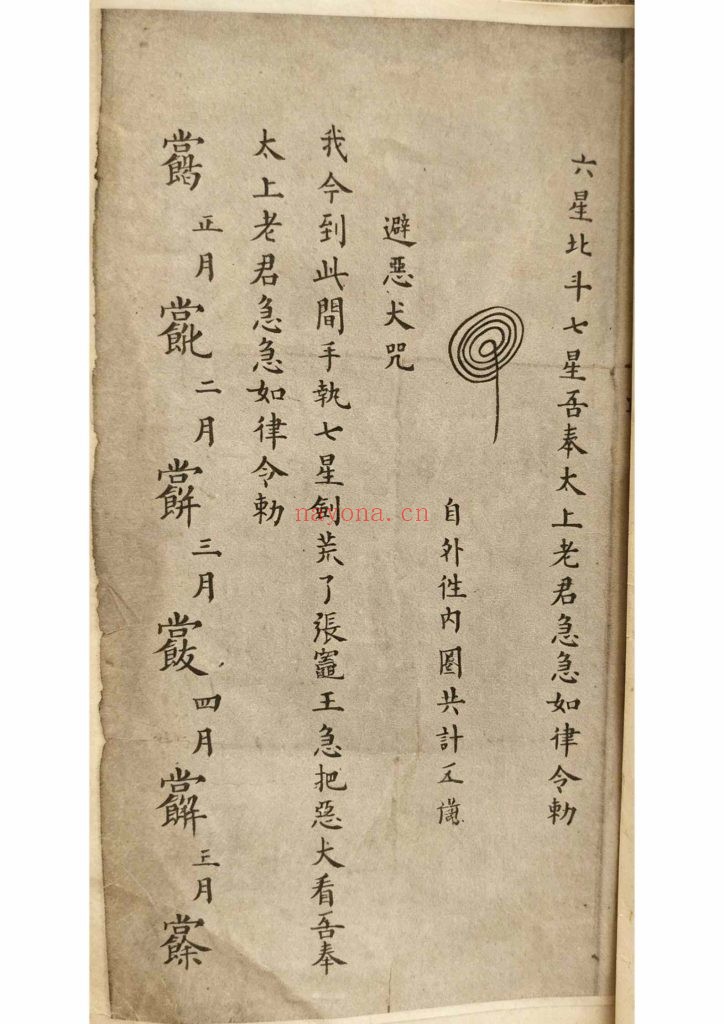 六星北斗七星吾奉太上老君急急如律令勅
自外徃内圈共計五
避惡犬咒
我今到此間手執七星劍荒了張竈王急把惡犬看吾奉
太上老君急急如律令勅
正月 二月 三月 四月 五月
nayona.cn